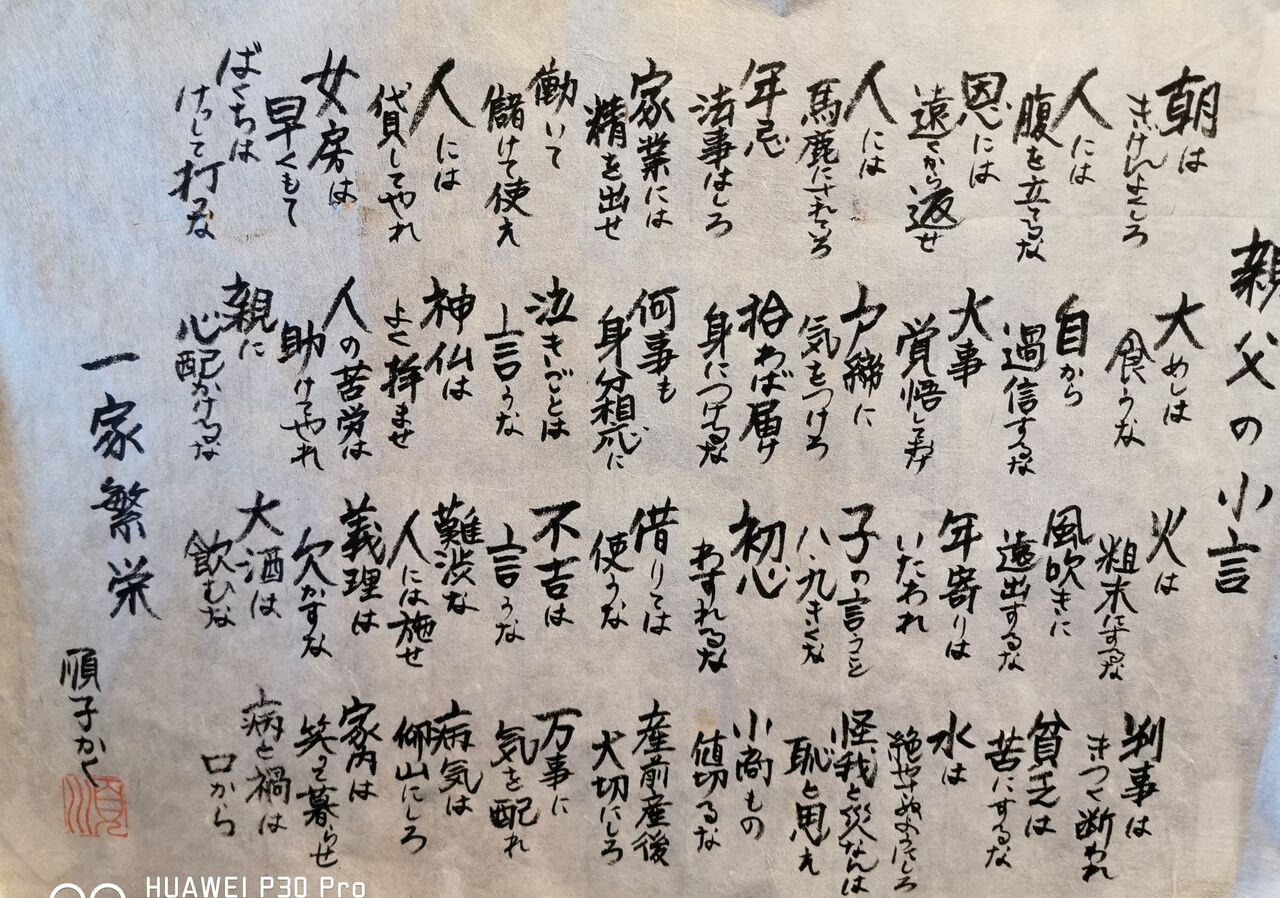 親父の小言
朝は
きげんよくしろ
人には
腹を立てるな
恩には
遠くから返せ
人には
馬鹿にされていろ
年忌
法事はしろ
家業には
精を出せ
働いて
儲けて使え
人には
貸してやれ
女房は
早くもて
ばくちは
けっして打つな
大めしは
食うな
自から
過信するな
大事
覚悟しておけ
戸締に
気をつけろ
拾わば届け
身につけるな
何事も
身分相応に
泣きごとは
言うな
神仏は
よく拝ませ
人の苦労は
助けてやれ
親に
心配かけるな
火は
粗末にするな
風吹きに
遠出するな
年寄りは
いたわれ
子の言うこと
八・九きくな
初心
わすれるな
借りては
使うな
不吉は
言うな
難渋な
人には施せ
義理は
欠かすな
大酒は
飲むな
判事は
きつく断われ
貧乏は
苦にするな
水は
絶やさぬようにしろ
怪我と災なんは
恥と思え
小商もの
値切るな
産前産後
大切にしろ
万事に
気を配れ
病気は
仰山にしろ
家内は
笑って暮らせ
病と禍は
口から
一家繁栄
順子かく
順
HUAWEI P30 Pro